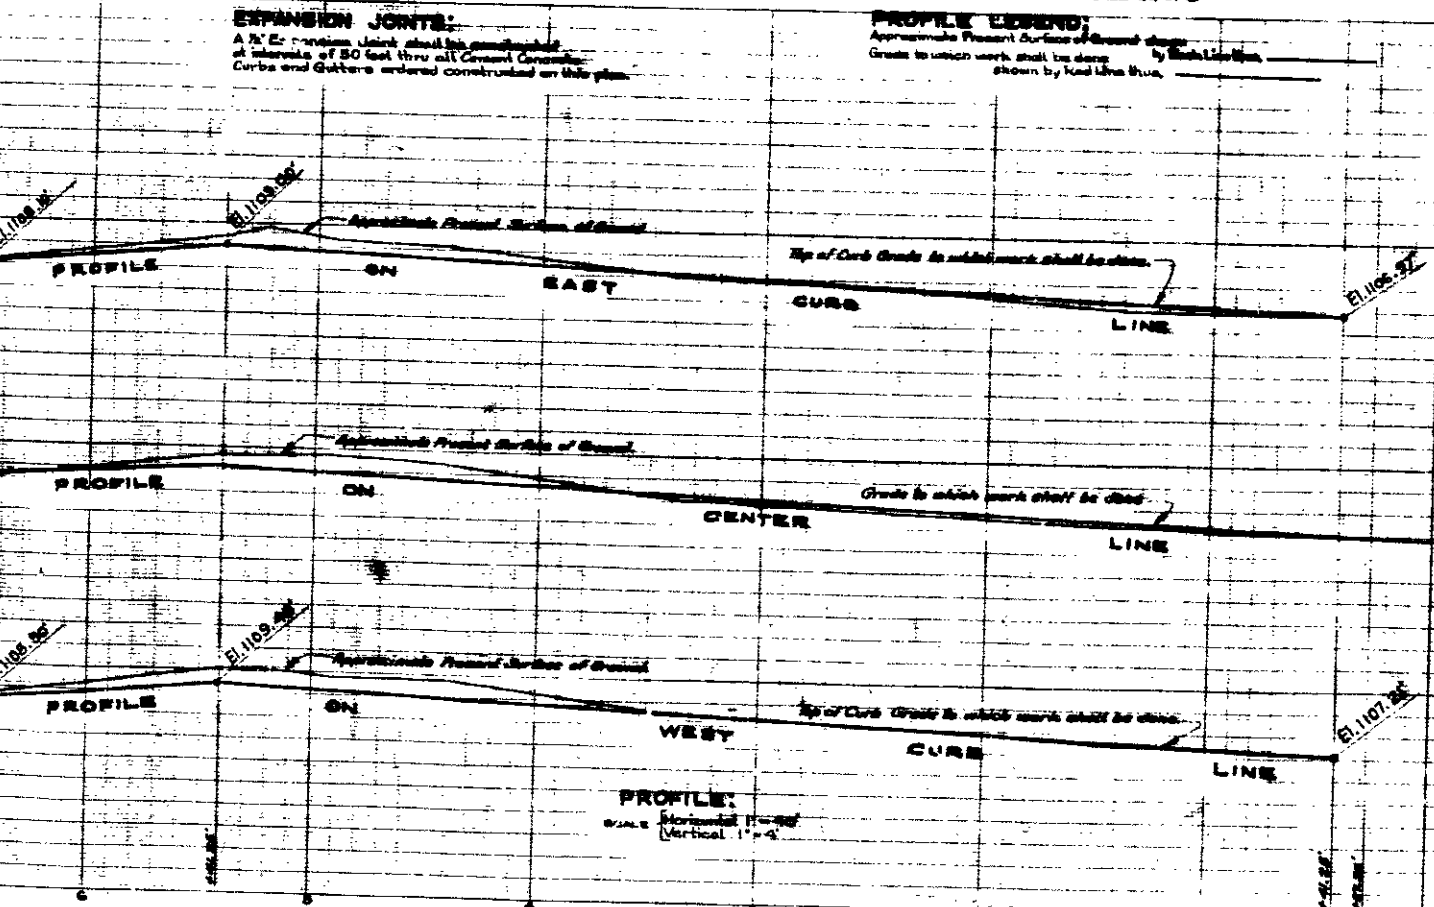 EXPANSION JOINTS:
A Expansion Joint shall be constructed
at intervals of 50 feet thru all Cement Concrete
Curbs and Gutters ordered constructed on this plan.
PROFILE LEGEND:
Approximate Present Surface of Ground shown
by Black Line thus,
Grade to which work shall be done
shown by Red Line thus,
El. 1109.00'
Approximate Present Surface of Ground
Top of Curb Grade to which work shall be done.
El. 1106.97'
PROFILE ON EAST CURB LINE
Approximate Present Surface of Ground.
Grade to which work shall be done
PROFILE ON CENTER LINE
El. 1109.48'
Approximate Present Surface of Ground.
Top of Curb Grade to which work shall be done.
PROFILE ON WEST CURB LINE
PROFILE:
SCALE Horizontal
Vertical 1" = 4'
6
5